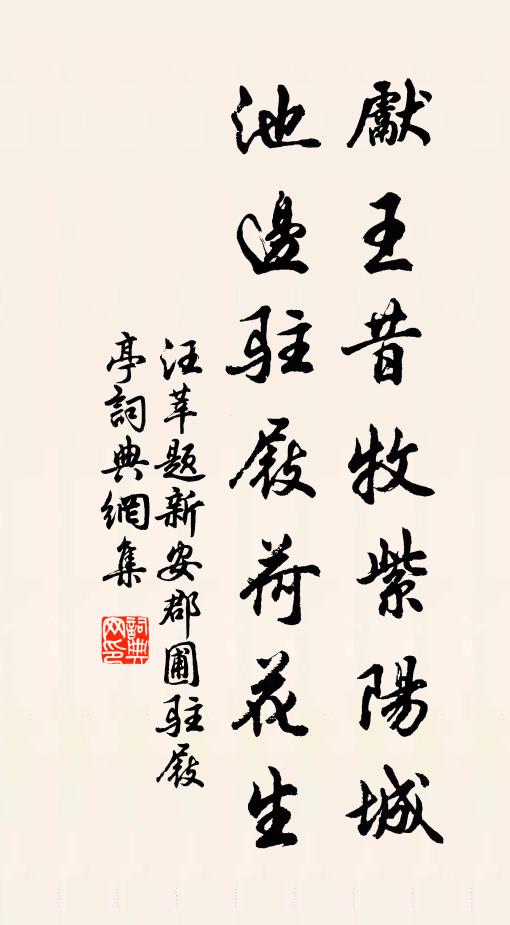 獻王昔牧紫陽城
池邊駐屐荷花生
汪莘題新安郡圃駐屐
亭詞典網集
詞典
网印